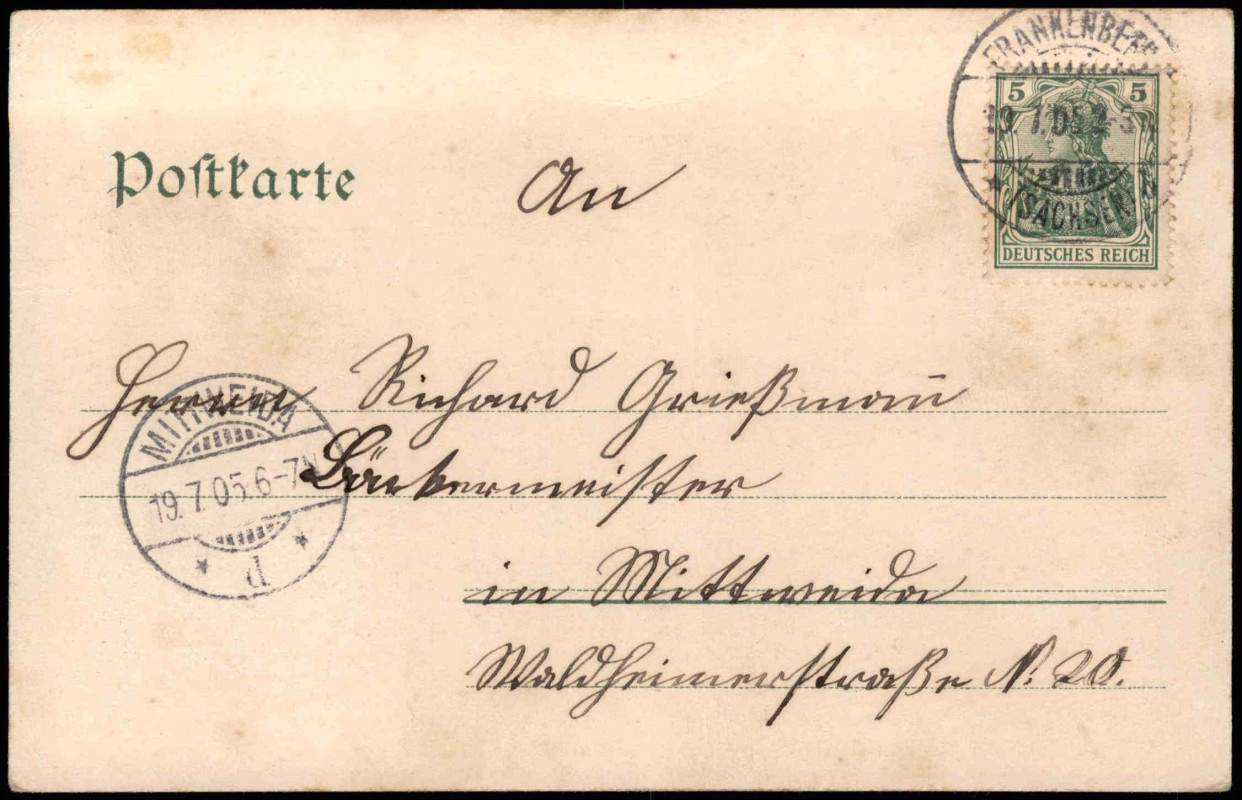 FRANKENBERG
19.7.05.2-3N
(SACHSEN)
5 5
DEUTSCHES REICH
Postkarte
An
Herrn Richard Grießmann
Bäckermeister
in Mittweida
Waldheimerstraße N. 20.
MITTWEIDA
19.7.05.6-7N
d